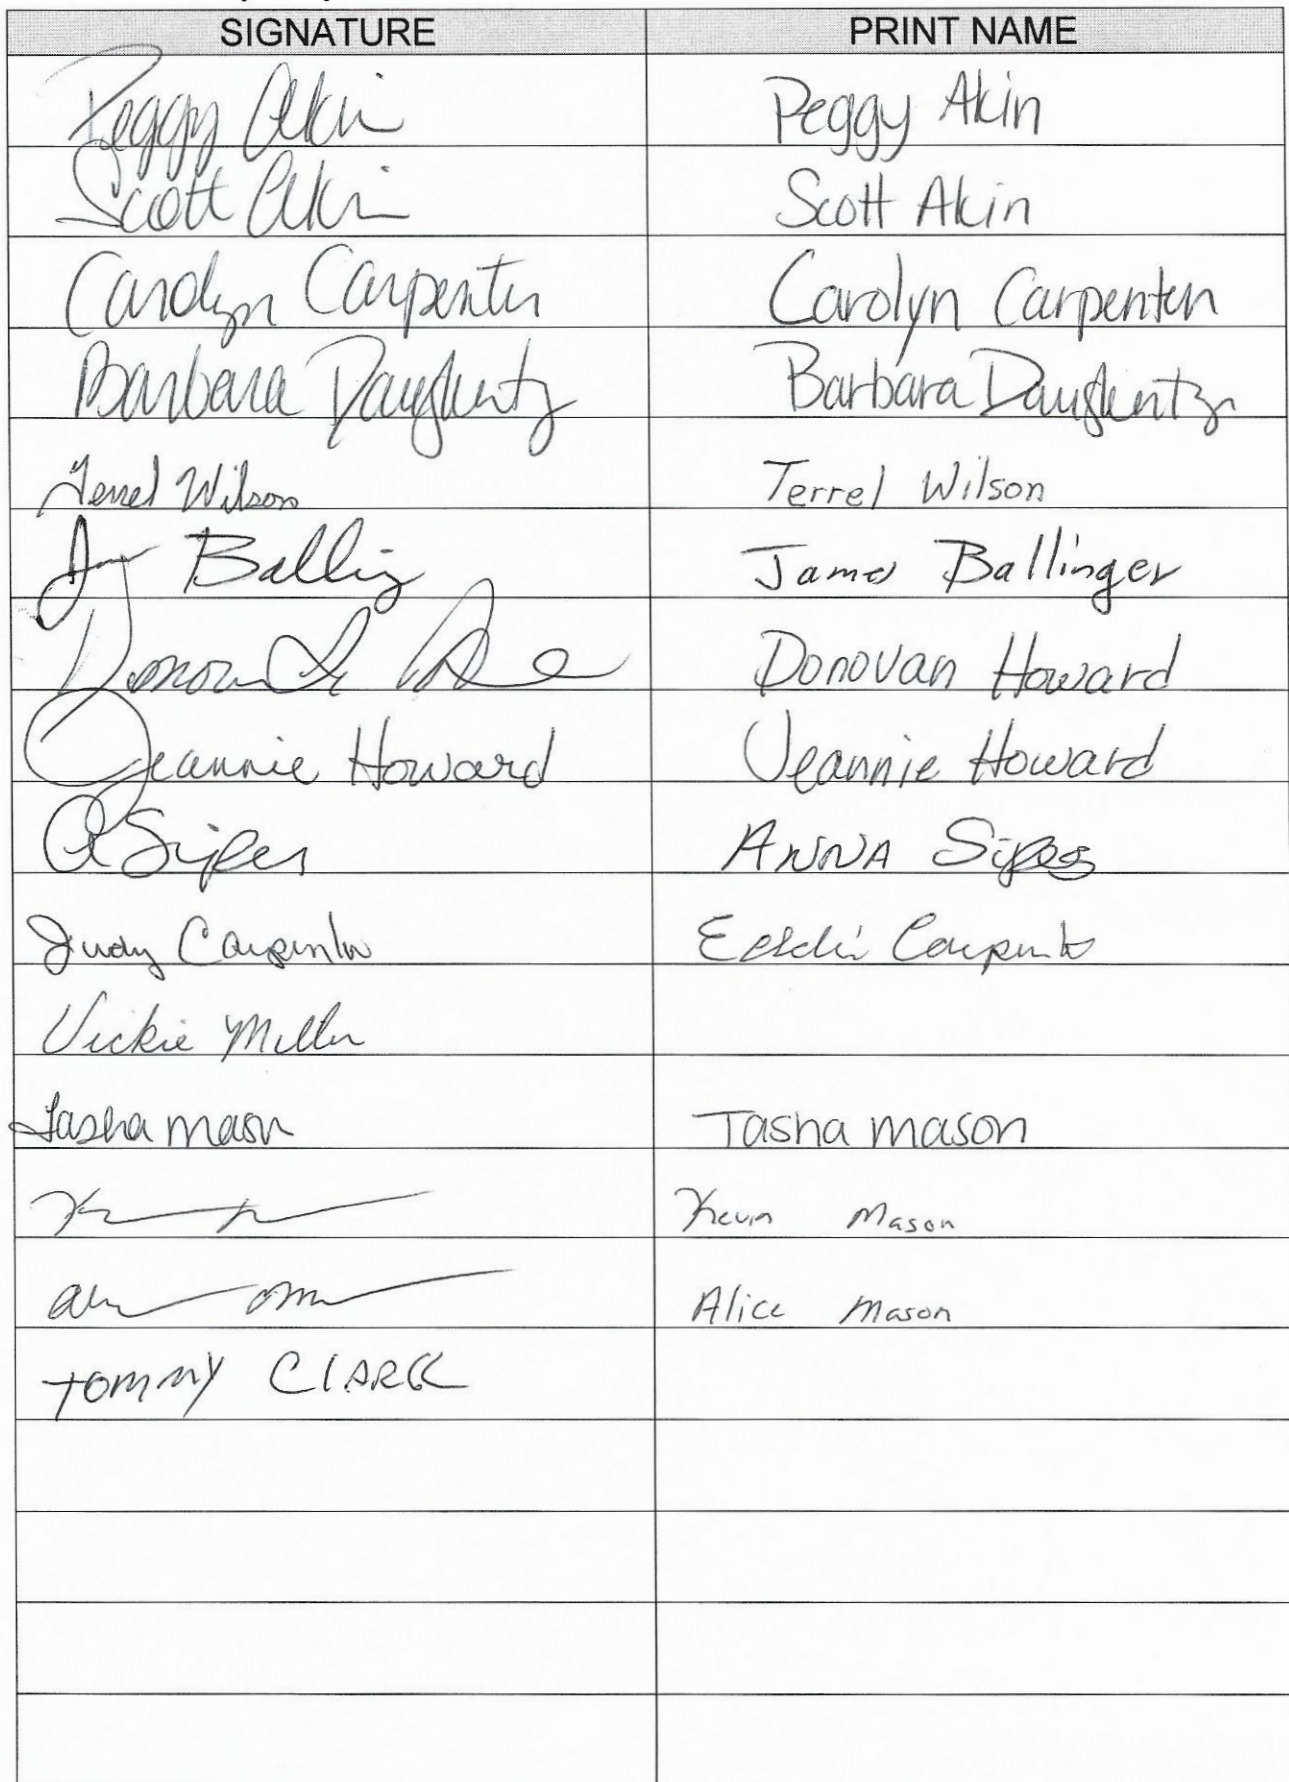 SIGNATURE PRINT NAME
Peggy Akin Peggy Akin
Scott Akin Scott Akin
Carolyn Carpenter Carolyn Carpenter
Barbara Daugherty Barbara Daugherty
Terrel Wilson Terrel Wilson
James Ballinger
Donovan Howard
Jeannie Howard Jeannie Howard
A Sipes ANNA Sipes
Judy Carpenter Eddie Carpenter
Vickie Miller
Tasha Mason Tasha Mason
Kevin Mason
Alice Mason
TOMMY CLARK